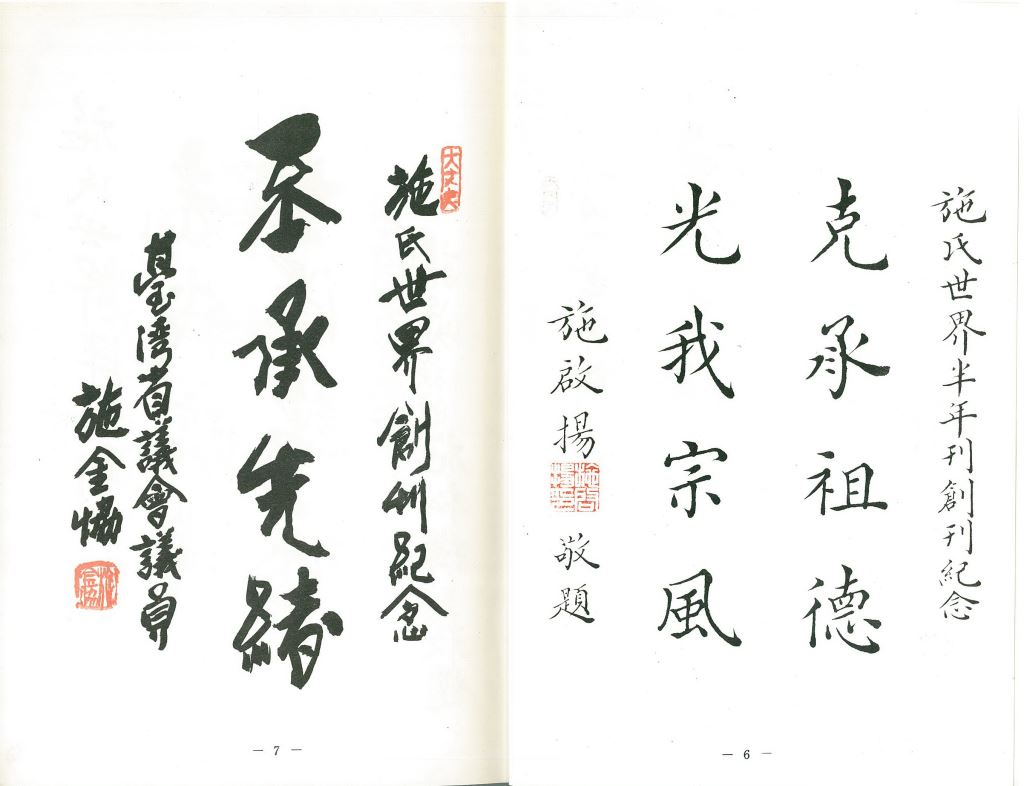 施氏世界半年刊創刊紀念
克承祖德
光我宗風
施啟揚 敬題
— 6 —
大丈夫
施氏世界創刊紀念
丕承先緒
臺灣省議會議員
施金協
— 7 —